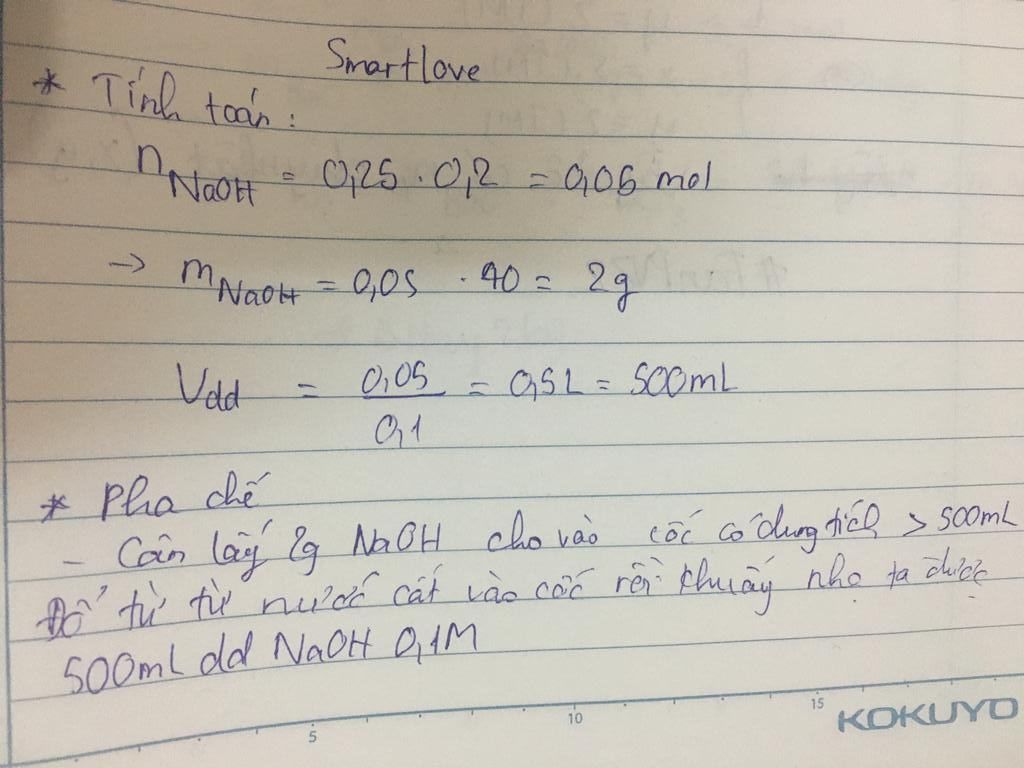 Smartlove
* Tính toán:
nNaOH = 0,25 . 0,2 = 0,05 mol
→ mNaOH = 0,05 . 40 = 2g
Vdd = 0,05/0,1 = 0,5L = 500mL
* Pha chế
- Cân lấy 2g NaOH cho vào cốc có dung tích > 500mL
Đổ từ từ nước cất vào cốc rồi khuấy nhẹ ta được
500mL dd NaOH 0,1M
5 10 15
KOKUYO